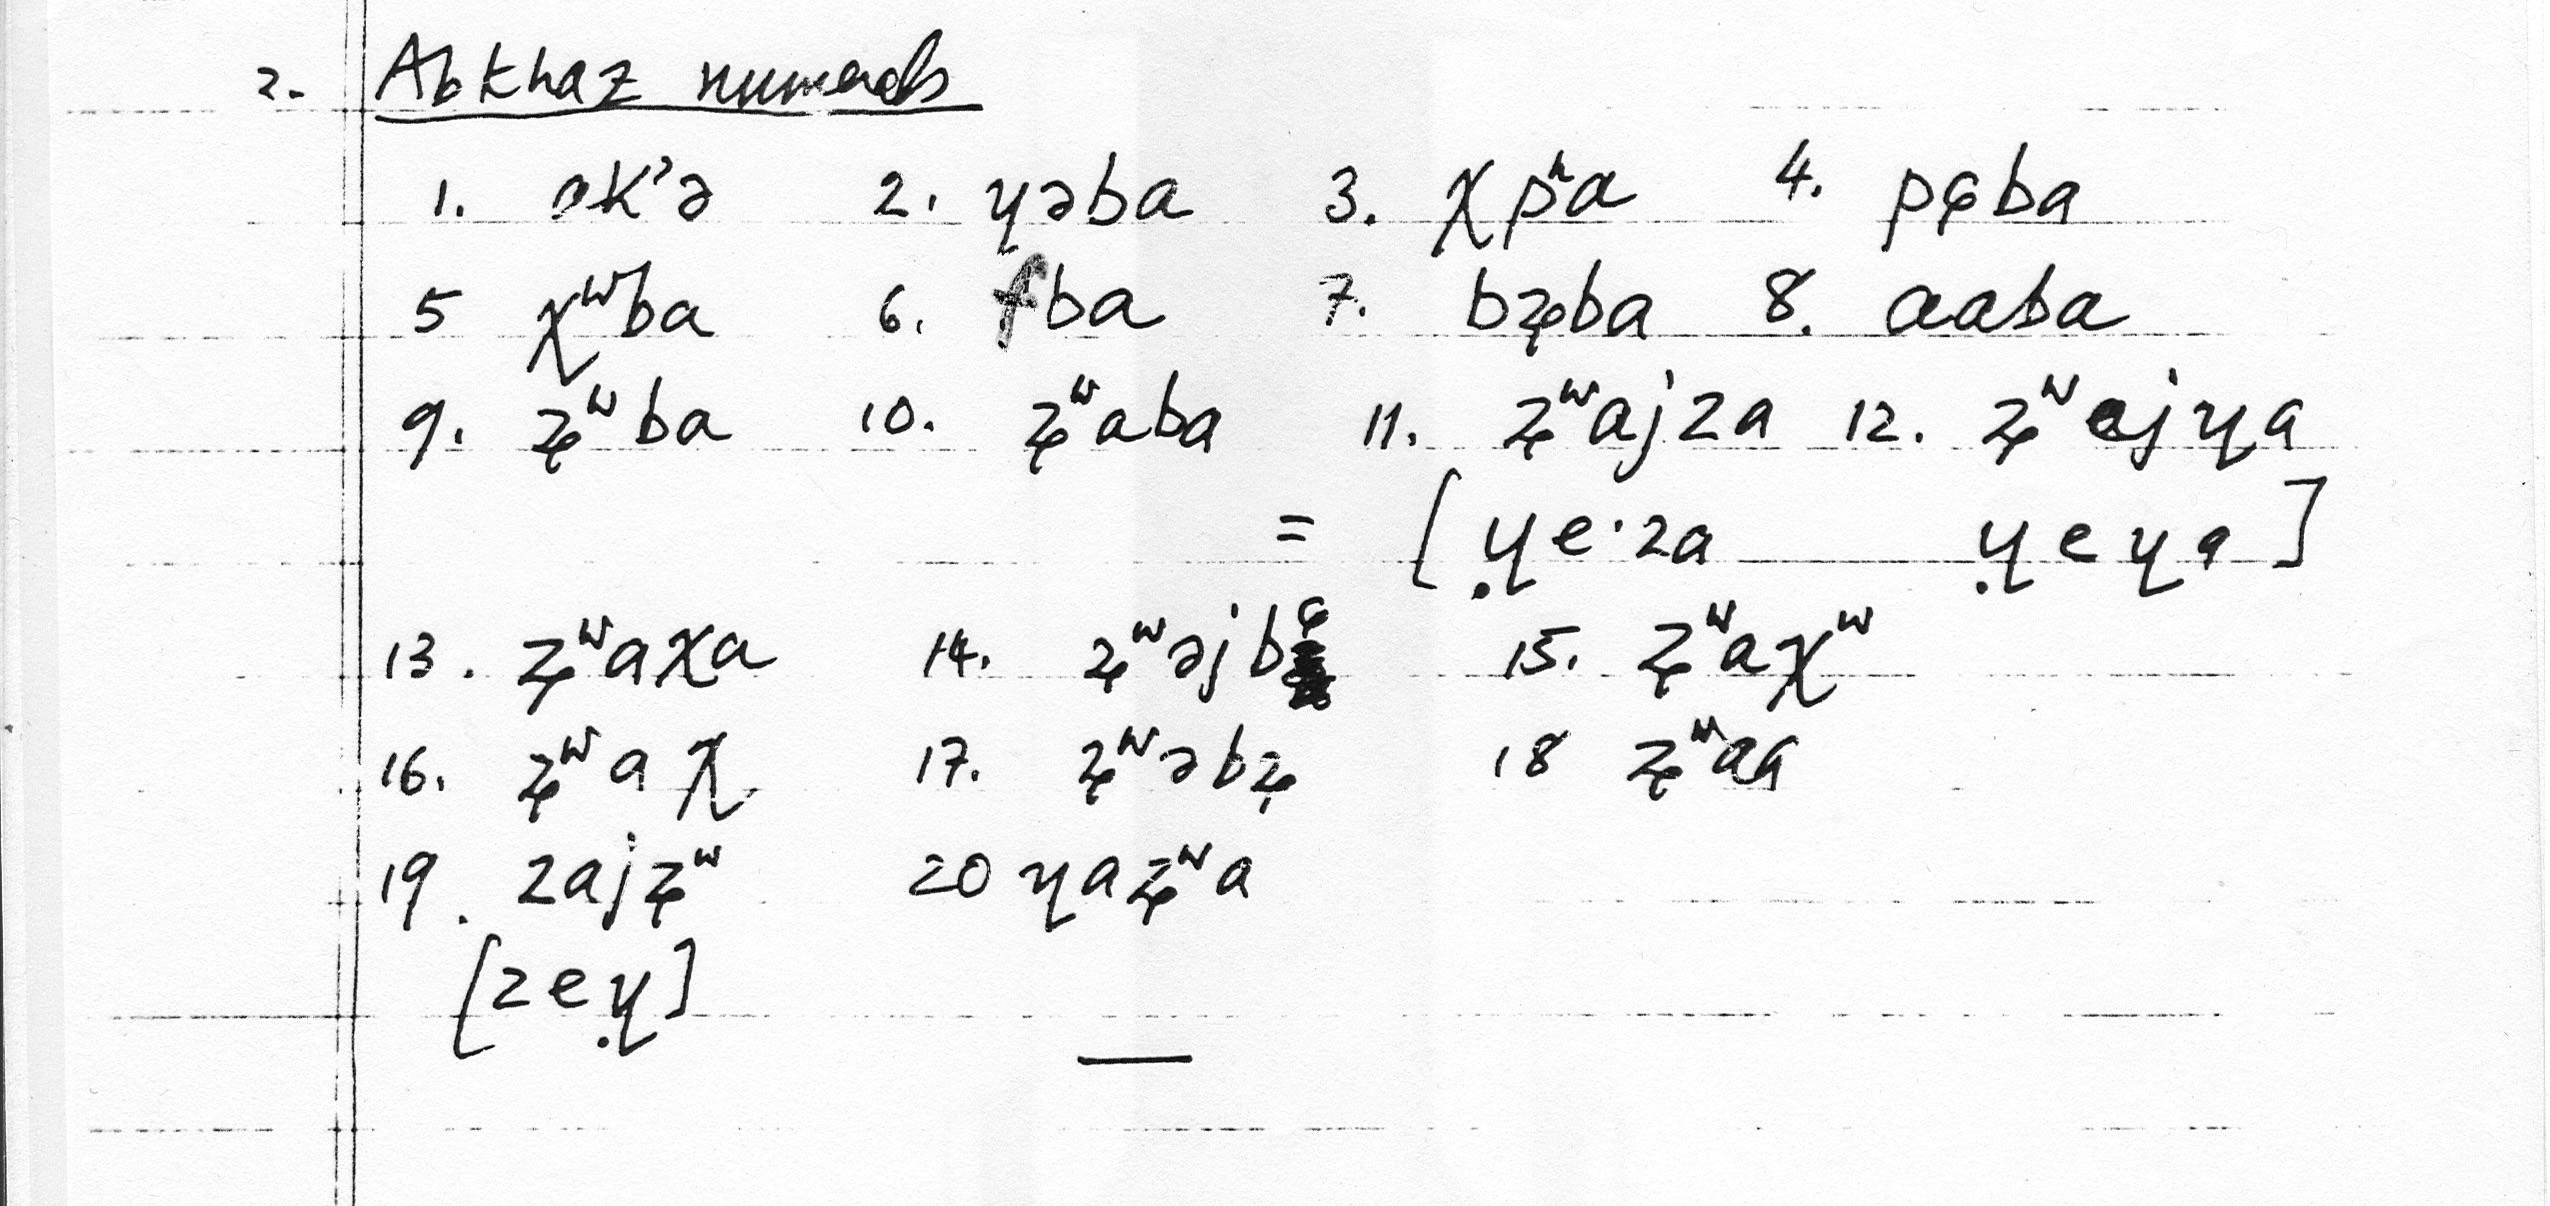 2. Abkhaz numerals
1. ak’ə 2. ɥəba 3. χpʰa 4. pʂba
5 χʷba 6. fba 7. bʑba 8. aaba
9. ʑʷba 10. ʑʷaba 11. ʑʷajza 12. ʑʷajɥa
= [ɥ̣e·za ɥ̣eɥa]
13. ʑʷaxa 14. ʑʷəjb 15. ʑʷaχʷ
16. ʑʷaχ 17. ʑʷəbʑ 18 ʑʷaa
19. zajʑʷ 20 ɥaʑʷa
[zeɥ̣]